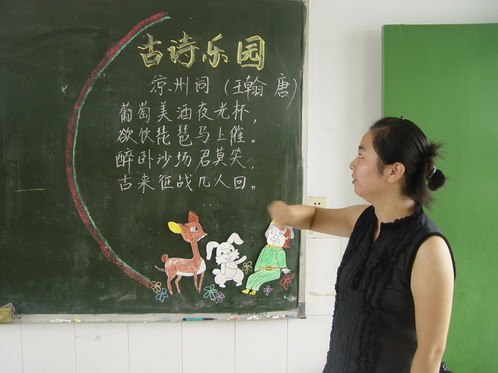 古诗乐园
凉州词 (王翰 唐)
葡萄美酒夜光杯，
欲饮琵琶马上催。
醉卧沙场君莫笑，
古来征战几人回。